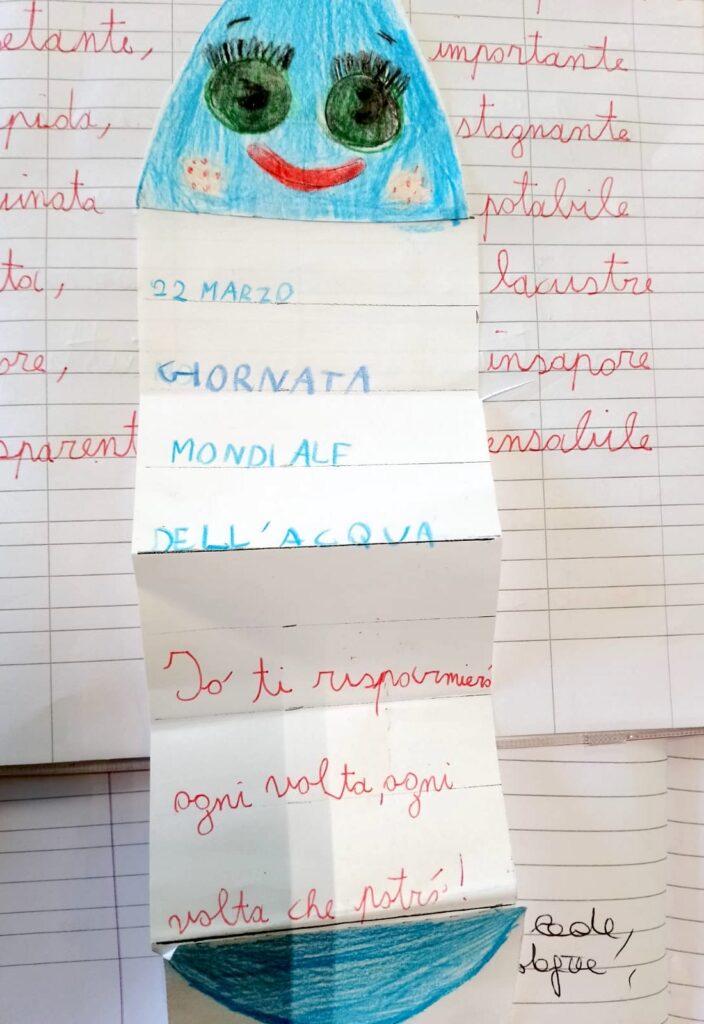 etante, importante
pida, stagnante
inata potabile
ta, lacustre
ore, insapore
sparent ensabile
22 MARZO
GIORNATA
MONDIALE
DELL'ACQUA
Io ti risparmierò
ogni volta, ogni
volta che potrò!
cade,